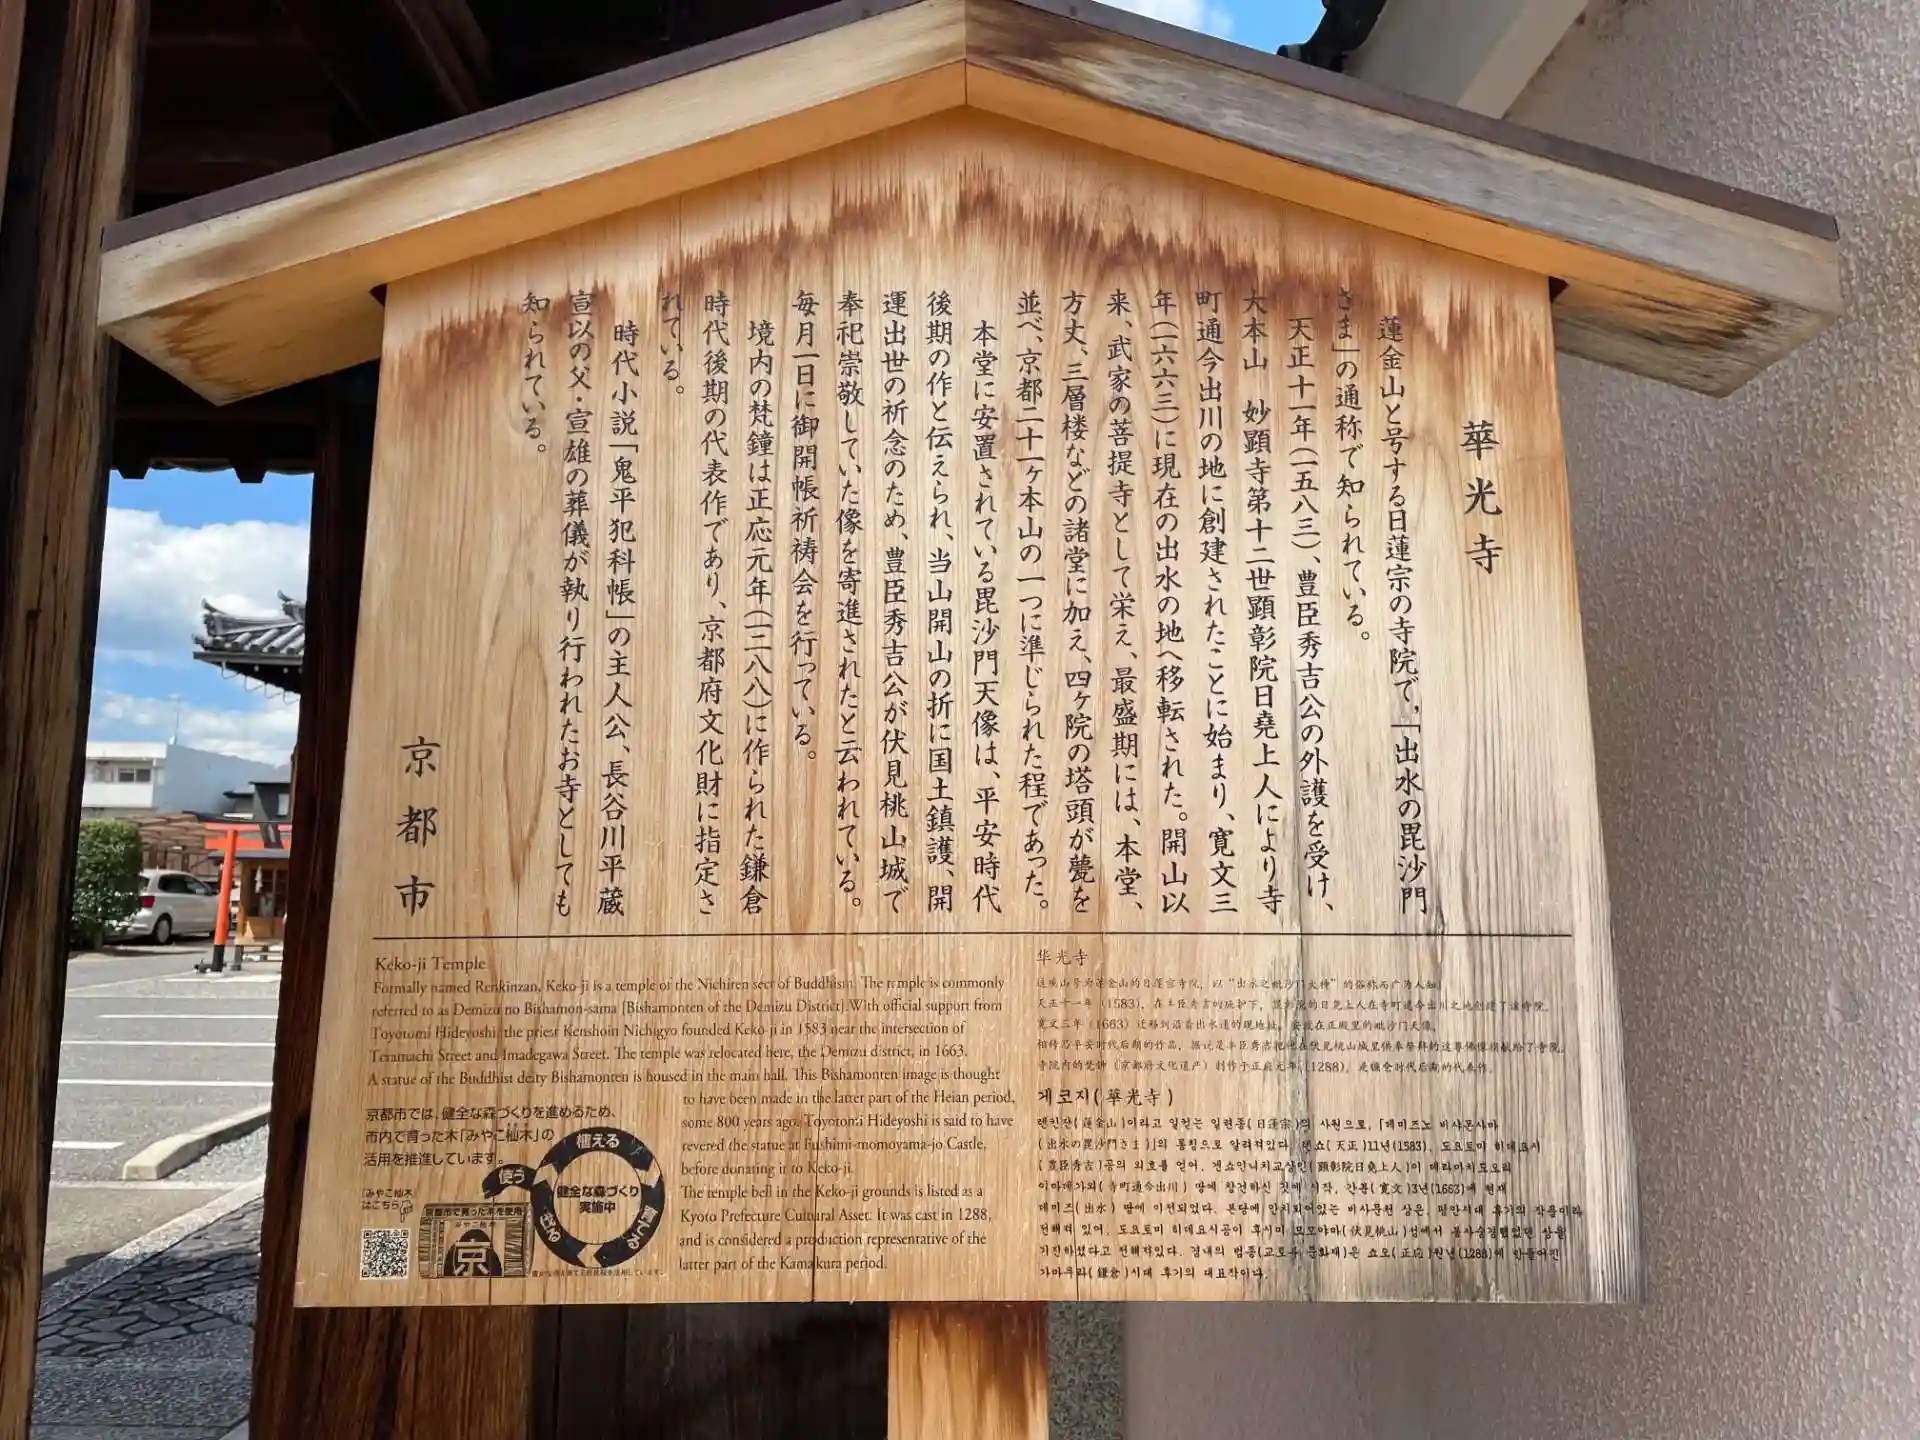 華光寺
蓮金山と号する日蓮宗の寺院で、「出水の毘沙門
さま」の通称で知られている。
天正十一年(一五八三)、豊臣秀吉公の外護を受け、
大本山 妙顕寺第十二世顕彰院日堯上人により寺
町通今出川の地に創建されたことに始まり、寛文三
年(一六六三)に現在の出水の地へ移転された。開山以
来、武家の菩提寺として栄え、最盛期には、本堂、
方丈、三層楼などの諸堂に加え、四ヶ院の塔頭が甍を
並べ、京都二十一ヶ本山の一つに準じられた程であった。
本堂に安置されている毘沙門天像は、平安時代
後期の作と伝えられ、当山開山の折に国土鎮護、開
運出世の祈念のため、豊臣秀吉公が伏見桃山城で
奉祀崇敬していた像を寄進されたと云われている。
毎月一日に御開帳祈祷会を行っている。
境内の梵鐘は正応元年(一二八八)に作られた鎌倉
時代後期の代表作であり、京都府文化財に指定さ
れている。
時代小説「鬼平犯科帳」の主人公、長谷川平蔵
宣以の父・宣雄の葬儀が執り行われたお寺としても
知られている。
京都市
Keko-ji Temple
Formally named Renkinzan, Keko-ji is a temple of the Nichiren sect of Buddhism. The temple is commonly
referred to as Demizu no Bishamon-sama [Bishamonten of the Demizu District]. With official support from
Toyotomi Hideyoshi, the priest Kenshoin Nichigyo founded Keko-ji in 1583 near the intersection of
Teramachi Street and Imadegawa Street. The temple was relocated here, the Demizu district, in 1663.
A statue of the Buddhist deity Bishamonten is housed in the main hall. This Bishamonten image is thought
to have been made in the latter part of the Heian period,
some 800 years ago. Toyotomi Hideyoshi is said to have
revered the statue at Fushimi-momoyama-jo Castle,
before donating it to Keko-ji.
The temple bell in the Keko-ji grounds is listed as a
Kyoto Prefecture Cultural Asset. It was cast in 1288,
and is considered a production representative of the
latter part of the Kamakura period.
京都市では、健全な森づくりを進めるため、
市内で育った木「みやこ杣木」の
活用を推進しています。
「みやこ杣木」
はこちら
植える
育てる
伐る
使う
健全な森づくり
実施中
京都市で育った木を使用
みやこ杣木
京
华光寺
天正十一年（1583），在丰臣秀吉的庇护下，显彰院的日尧上人在寺町通今出川之地创建了该寺院。
宽文三年（1663）迁移到沿着出水道的现地址。安放在正殿里的毗沙门天像，
相传乃平安时代后期的作品，据说是丰臣秀吉把他在伏见桃山城里供奉祭拜的这尊佛像捐献给了寺院。
寺院内的梵钟（京都府文化遗产）制作于正应元年（1288），是镰仓时代后期的代表作。
게코지(華光寺)
렌킨잔(蓮金山)이라고 일컫는 일련종(日蓮宗)의 사원으로, 「데미즈노 비샤몬사마
(出水の毘沙門さま)」의 통칭으로 알려져있다. 텐쇼(天正)11년(1583), 도요토미 히데요시
(豊臣秀吉)공의 외호를 얻어, 겐쇼인니치교상인(顕彰院日堯上人)이 데라마치도오리
이마데가와(寺町通今出川) 땅에 창건하신 것에 시작, 간분(寛文)3년(1663)에 현재
데미즈(出水) 땅에 이전되었다. 본당에 안치되어있는 비사문천 상은, 평안시대 후기의 작품이라
전해져 있어, 도요토미 히데요시공이 후시미 모모야마(伏見桃山)성에서 봉사숭경했었던 상을
기진하셨다고 전해져있다. 경내의 범종(교토부 문화재)은 쇼오(正応)원년(1288)에 만들어진
가마쿠라(鎌倉)시대 후기의 대표작이다.